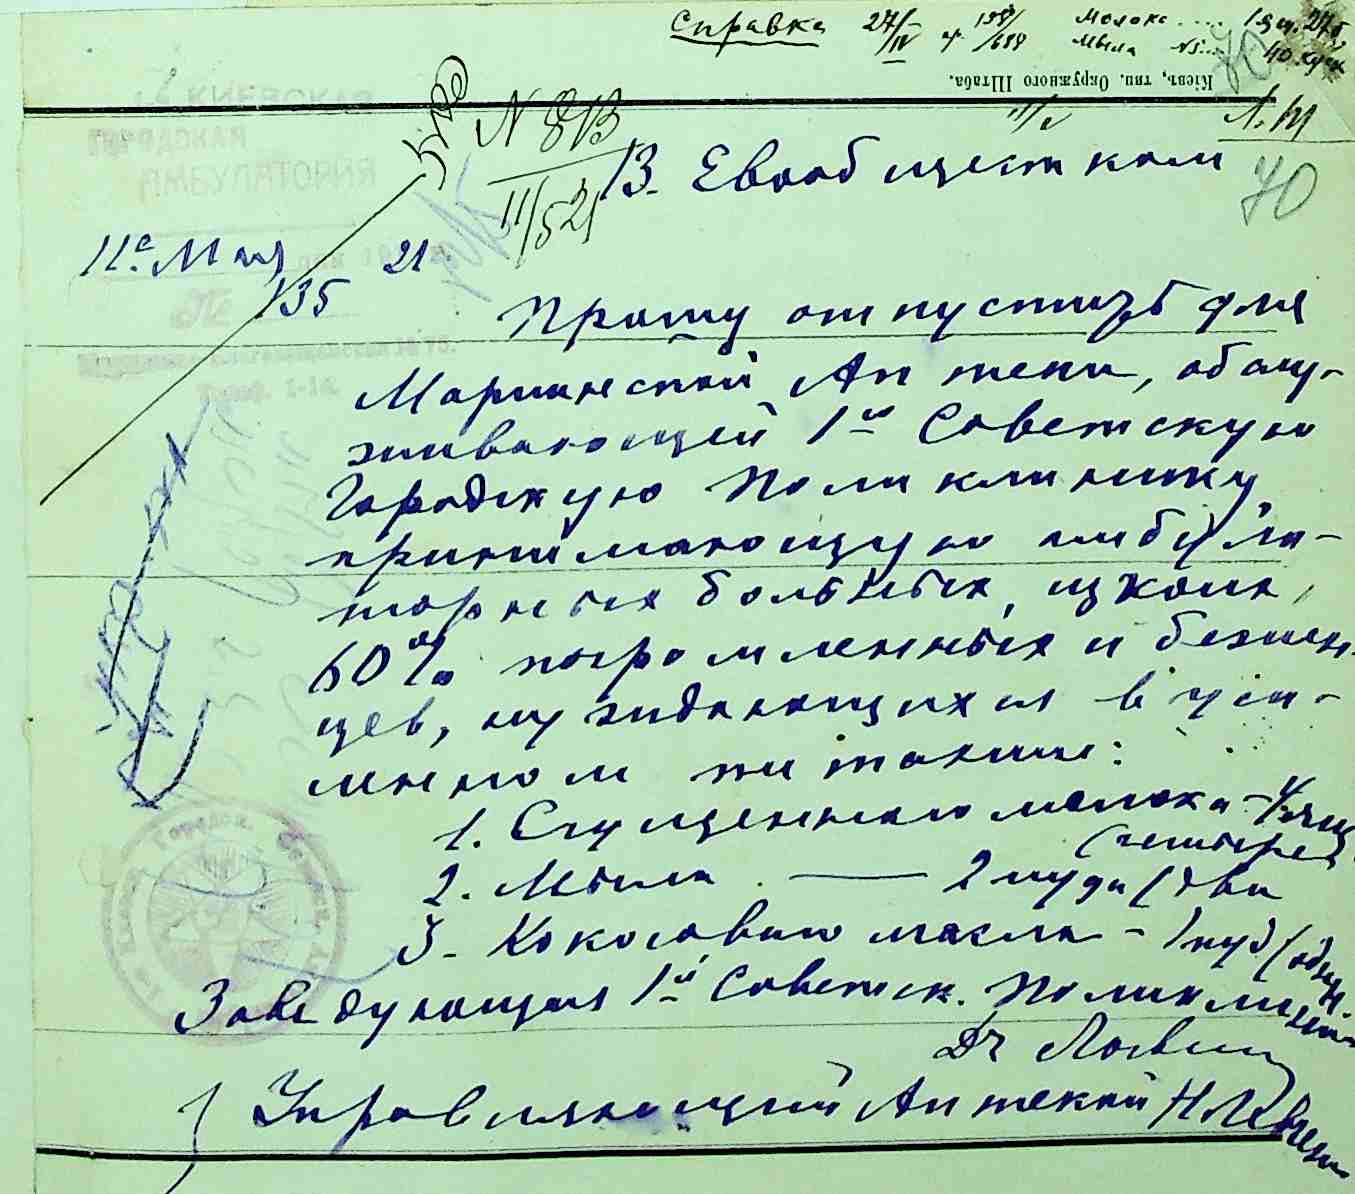 Справка 27/IV ар. 199/688 Молока .... 1 ящ. 27б
Мыла №5... 40 кус
Кіевъ, тип. Окружного Штаба.
70
КИЕВСКАЯ
ГОРОДСКАЯ
АМБУЛАТОРИЯ
N 813
11/5 21
В. Евобщестком
70
11го Мая 21.
135
Прошу отпустить для
Мариинской Аптеки, обслу-
живающей 1ю Советскую
Городскую Поликлинику
принимающую амбула-
торных больных, из коих,
60% погромленных и бежен-
цев, нуждающихся в уси-
ленном питании:
1. Сгущенного молока - 4 ящ
(четыре)
2. Мыла — 2 пуда (два
3. Кокосового масла - 1 пуд (один
Заведующая 1й Советск. Поликлиник
Др
Управляющий Аптекой